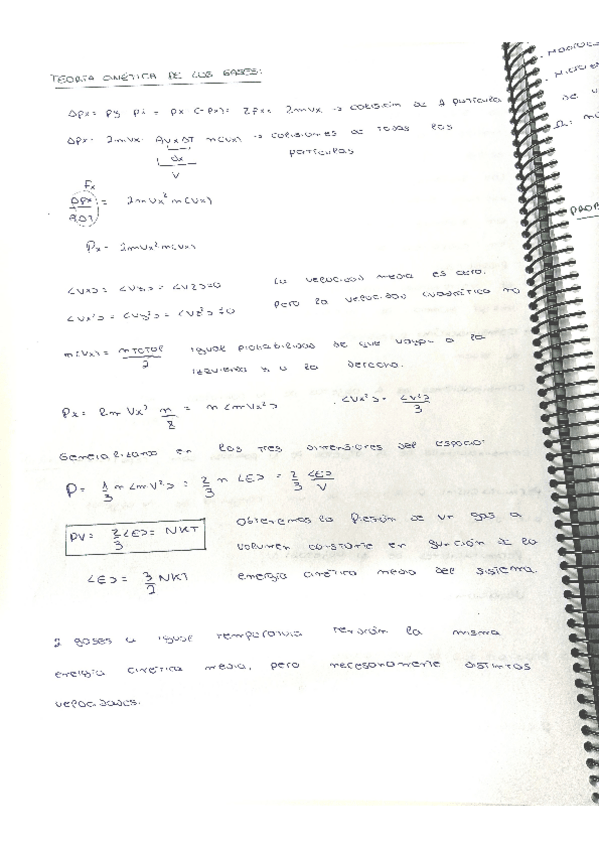 TEORÍA CINÉTICA DE LOS GASES:
ΔPx = Pf Pi = Px (-Px) = 2Px = 2mVx → colisión de 1 partícula
ΔPx = 2mVx · AVxΔT n(Vx) → colisiones de todas las
partículas
dx
V
Fx
ΔPx / AΔT = 2mVx² n(Vx)
Px = 2mVx² n(Vx)
<Vx> = <Vy> = <Vz> = 0 La velocidad media es cero,
<Vx²> = <Vy²> = <Vz²> ≠ 0 pero la velocidad cuadrática no
n(Vx) = nTOTAL / 2 igual probabilidad de que vayan a la
izquierda y a la derecha.
Px = 2m Vx² n/2 = n <mVx²> · <Vx²> = <V²>/3
Generalizando en las tres dimensiones del espacio:
P = 1/3 n <mV²> = 2/3 n <E> = 2/3 <E>/V
PV = 2/3 <E> = NKT Obtenemos la presión de un gas a
volumen constante en función de la
<E> = 3/2 NKT energía cinética media del sistema.
2 gases a igual temperatura tendrán la misma
energía cinética media, pero necesariamente distintas
velocidades.